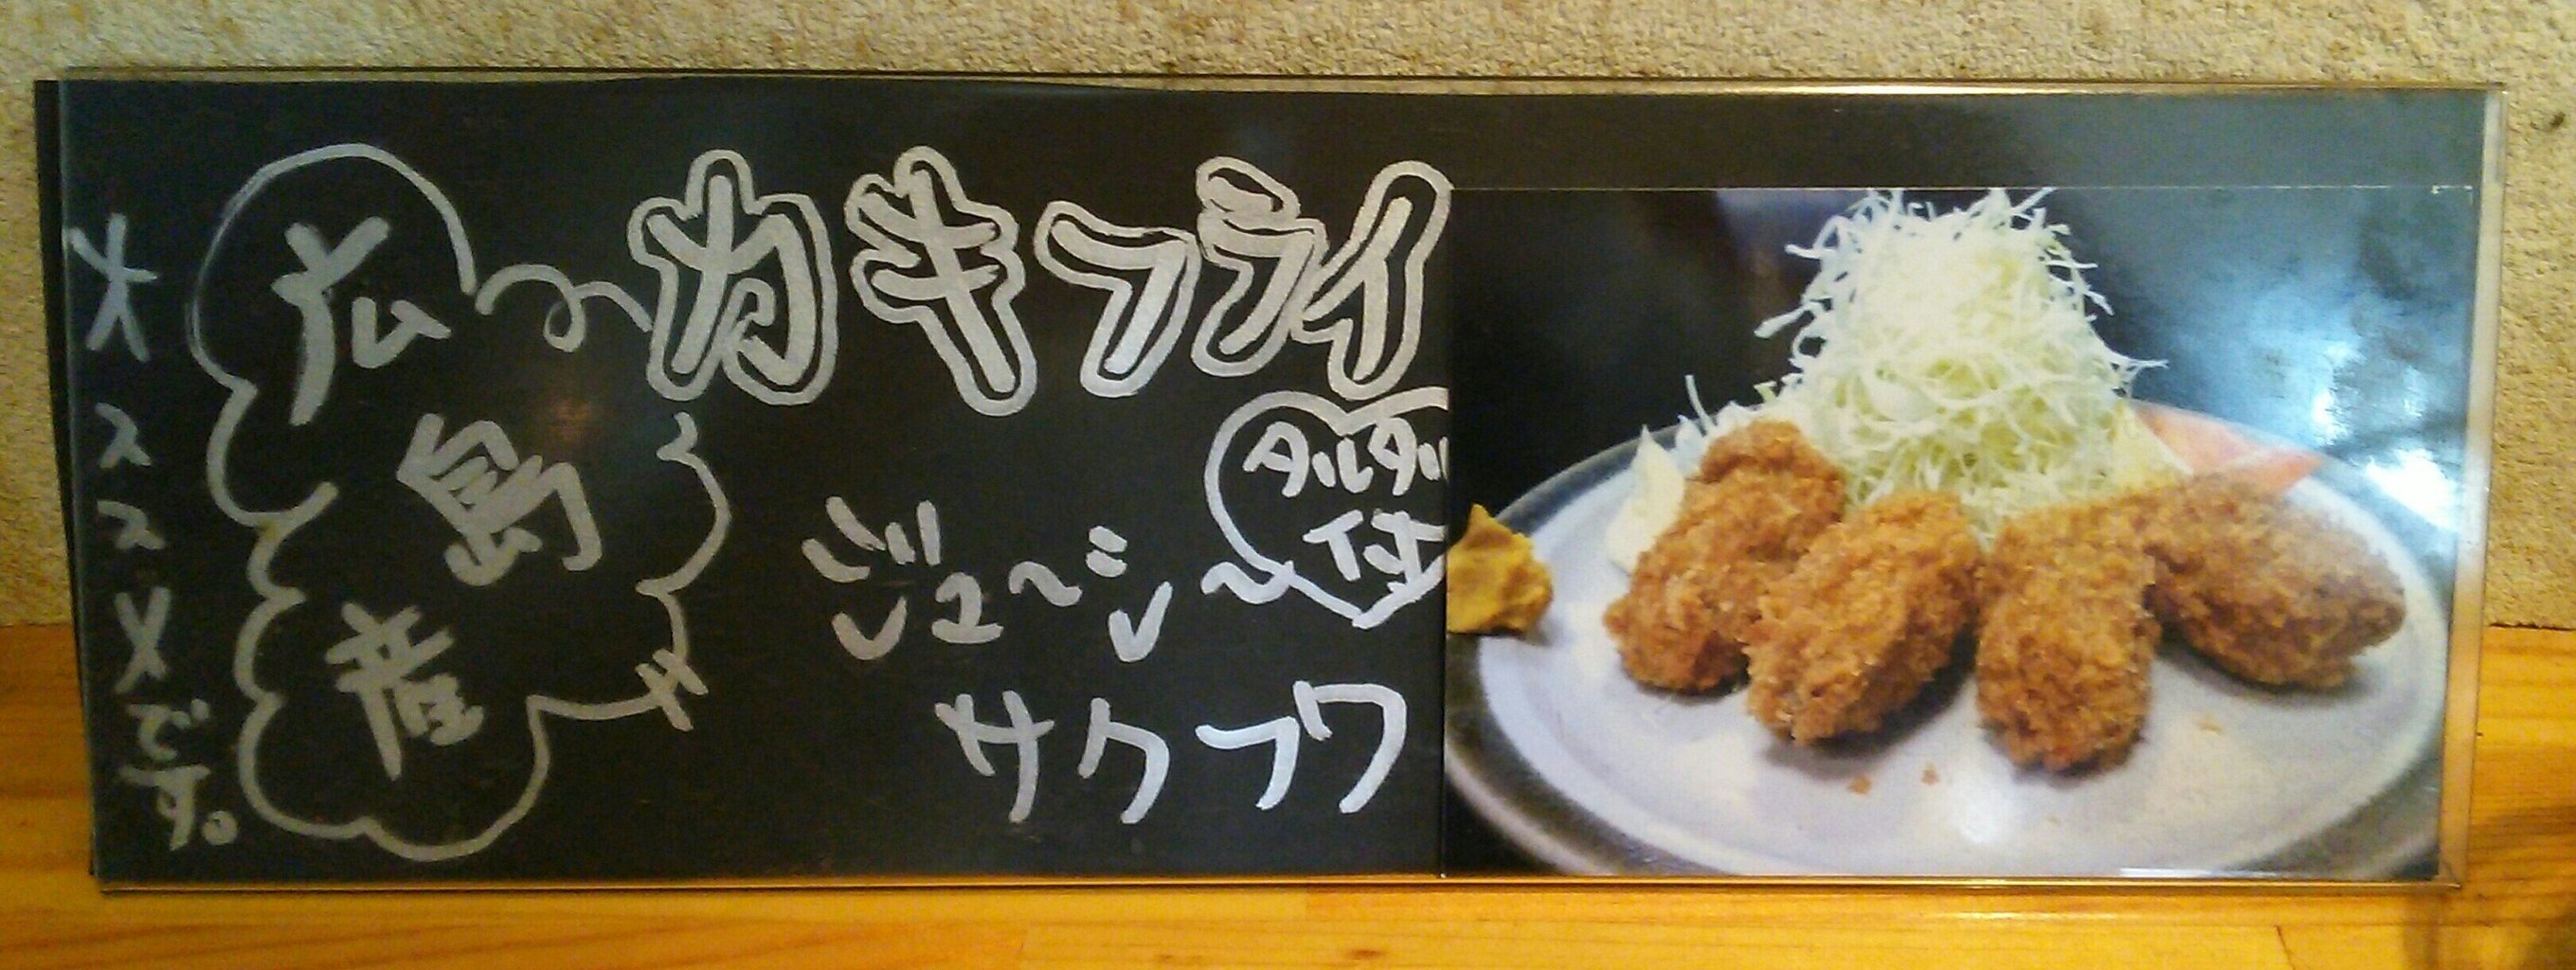 カキフライ
タルタル
付
ジュ〜シ〜
サクフワ
広島産
オススメです。